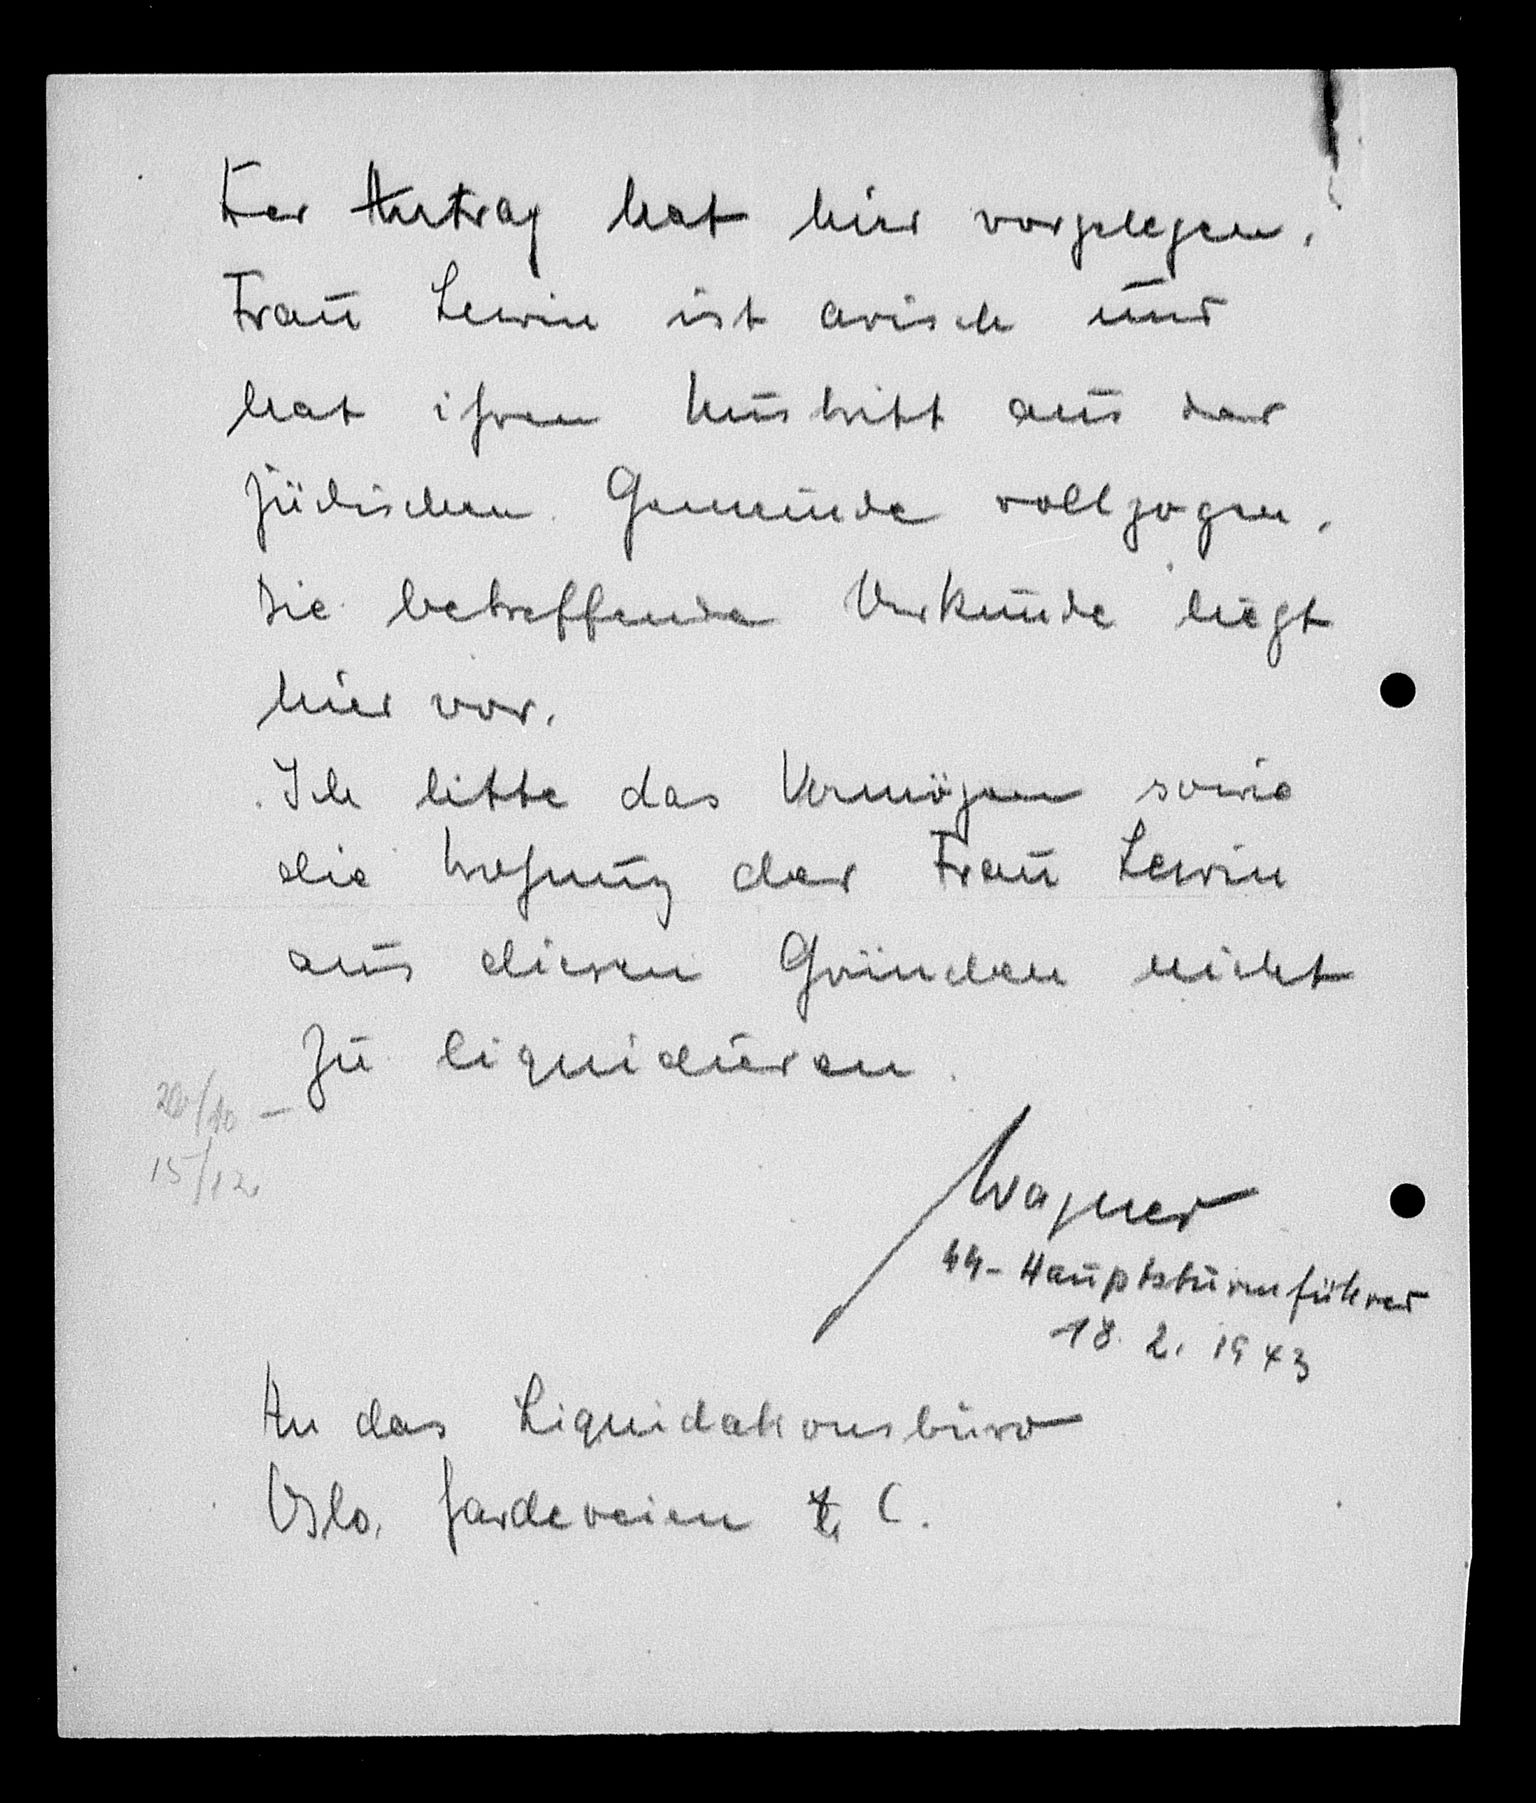 Der Antrag hat hier vorgelegen.
Frau Lewin ist arisch und
hat ihren Austritt aus der
jüdischen Gemeinde vollzogen.
Die betreffende Urkunde liegt
hier vor.
Ich bitte das Vermögen sowie
die Wohnung der Frau Lewin
aus diesen Gründen nicht
zu liquidieren.
20/10 -
15/12
Wagner
SS-Hauptsturmführer
18. 2. 1943
An das Liquidationsbüro
Oslo, Gardeveien C.